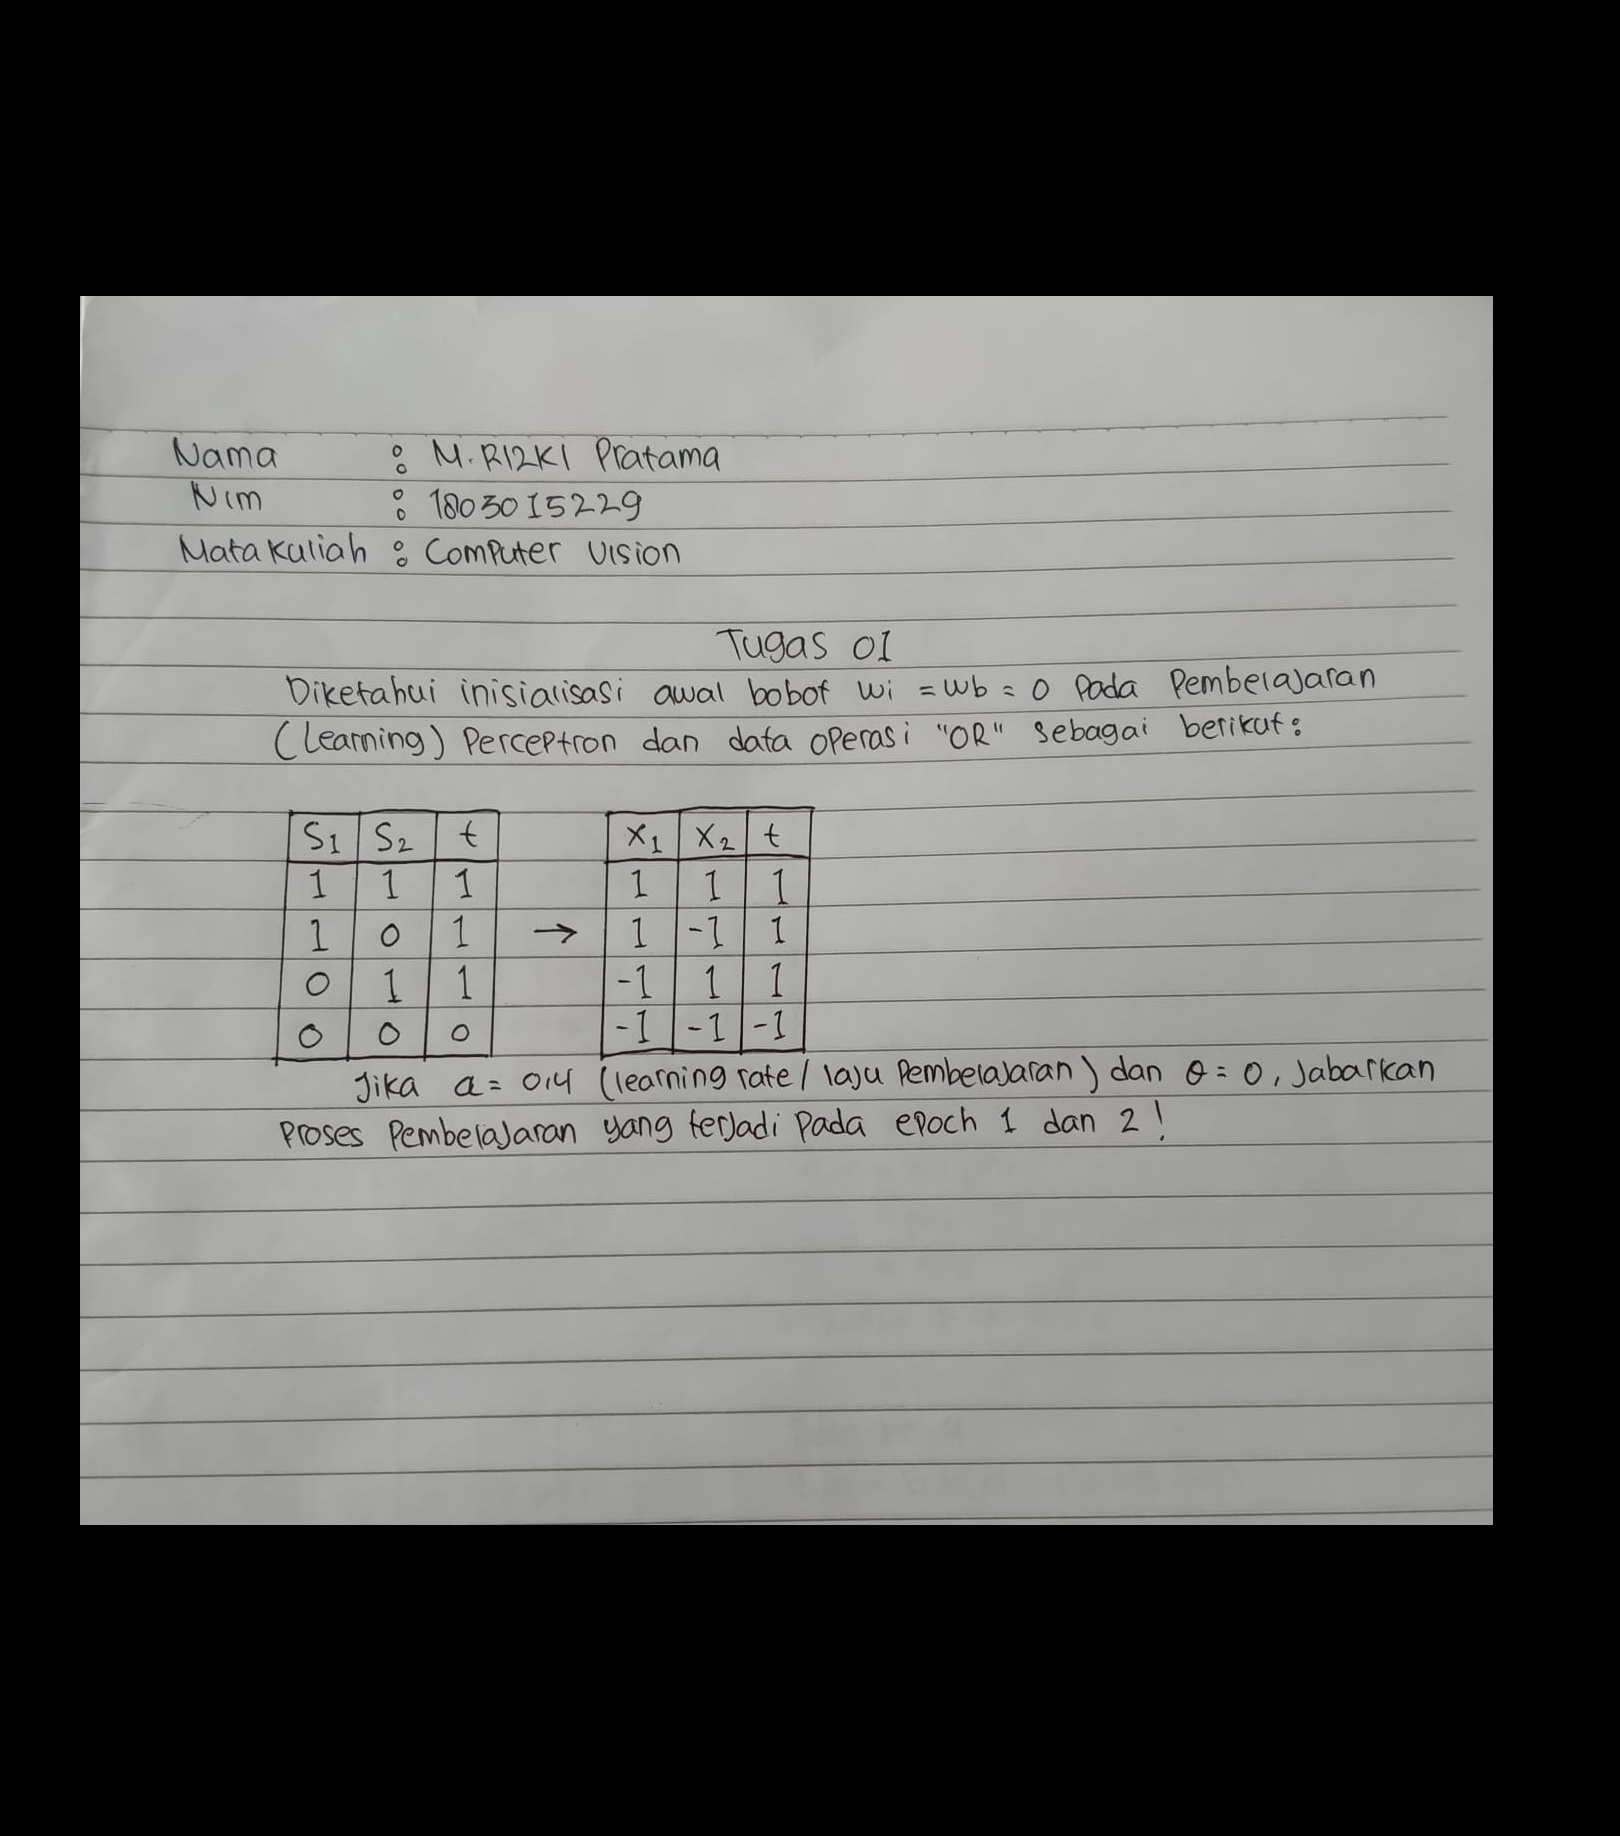 Nama : M. RIZKI Pratama
Nim : 1803015229
Mata kuliah : Computer Vision
Tugas 01
Diketahui inisialisasi awal bobot wi = wb = 0 Pada Pembelajaran
(Learning) Perceptron dan data operasi "OR" sebagai berikut :
S1 S2 t X1 X2 t
1 1 1 1 1 1
1 0 1 → 1 -1 1
0 1 1 -1 1 1
0 0 0 -1 -1 -1
Jika a = 0,4 (learning rate / laju Pembelajaran) dan θ = 0, Jabarkan
Proses Pembelajaran yang terjadi Pada epoch 1 dan 2 !